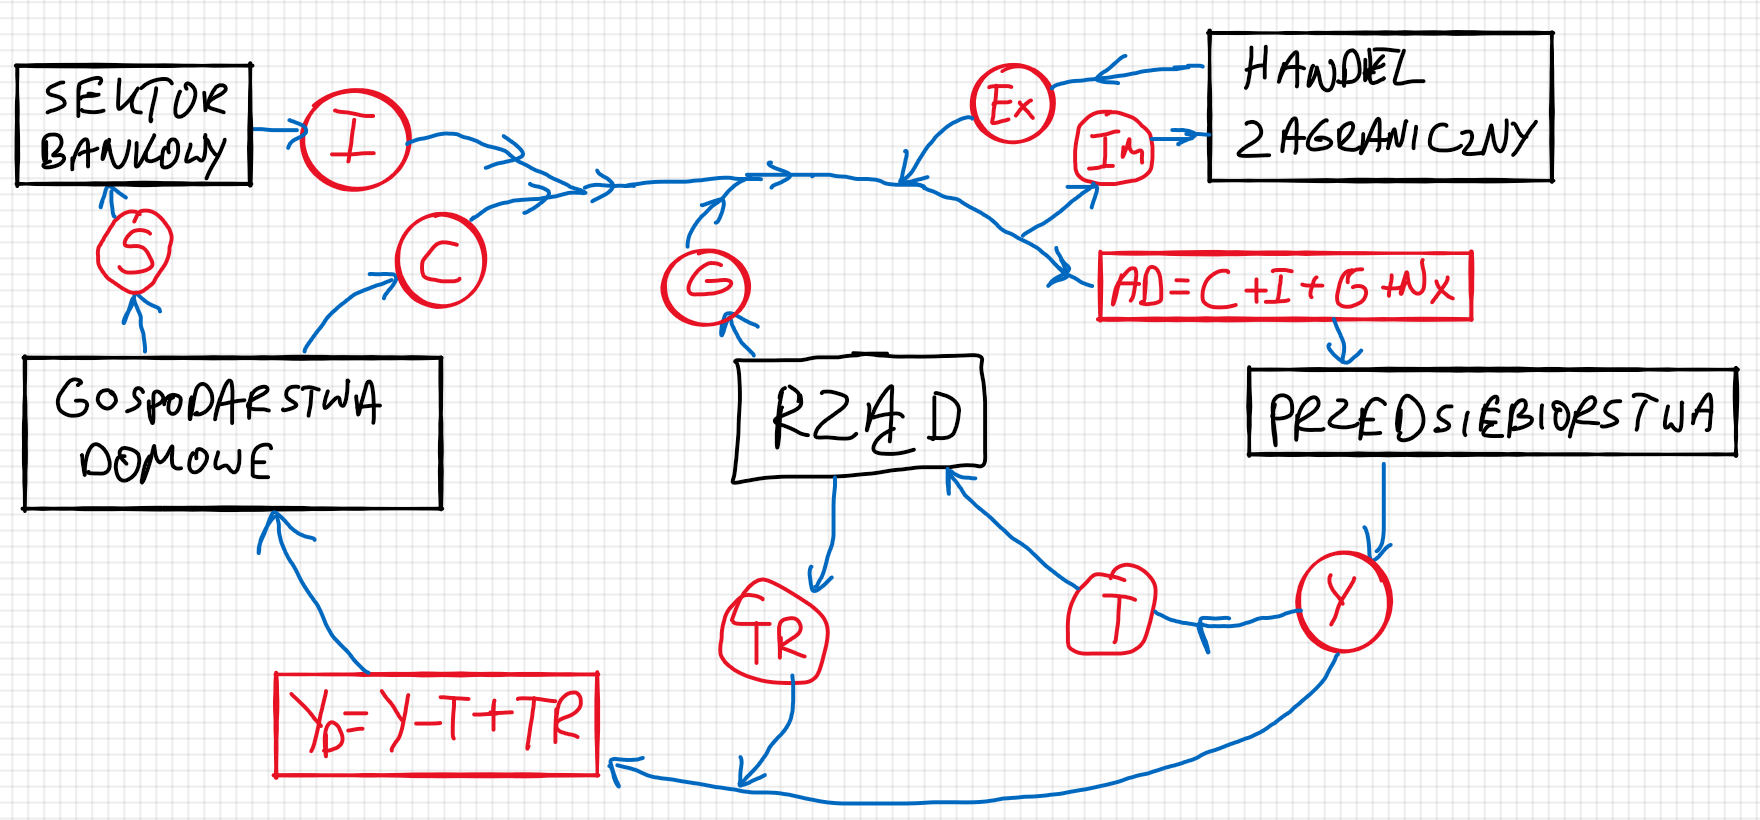 SEKTOR
BANKOWY
I
S
C
G
Ex
Im
HANDEL
ZAGRANICZNY
AD=C+I+G+Nx
GOSPODARSTWA
DOMOWE
RZĄD
PRZEDSIEBIORSTWA
TR
T
Y
YD=Y-T+TR